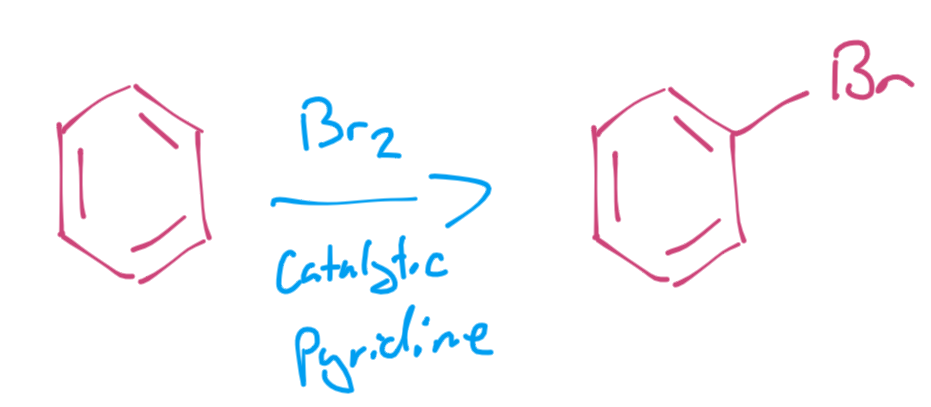 Br2
Catalytic
Pyridine
Br